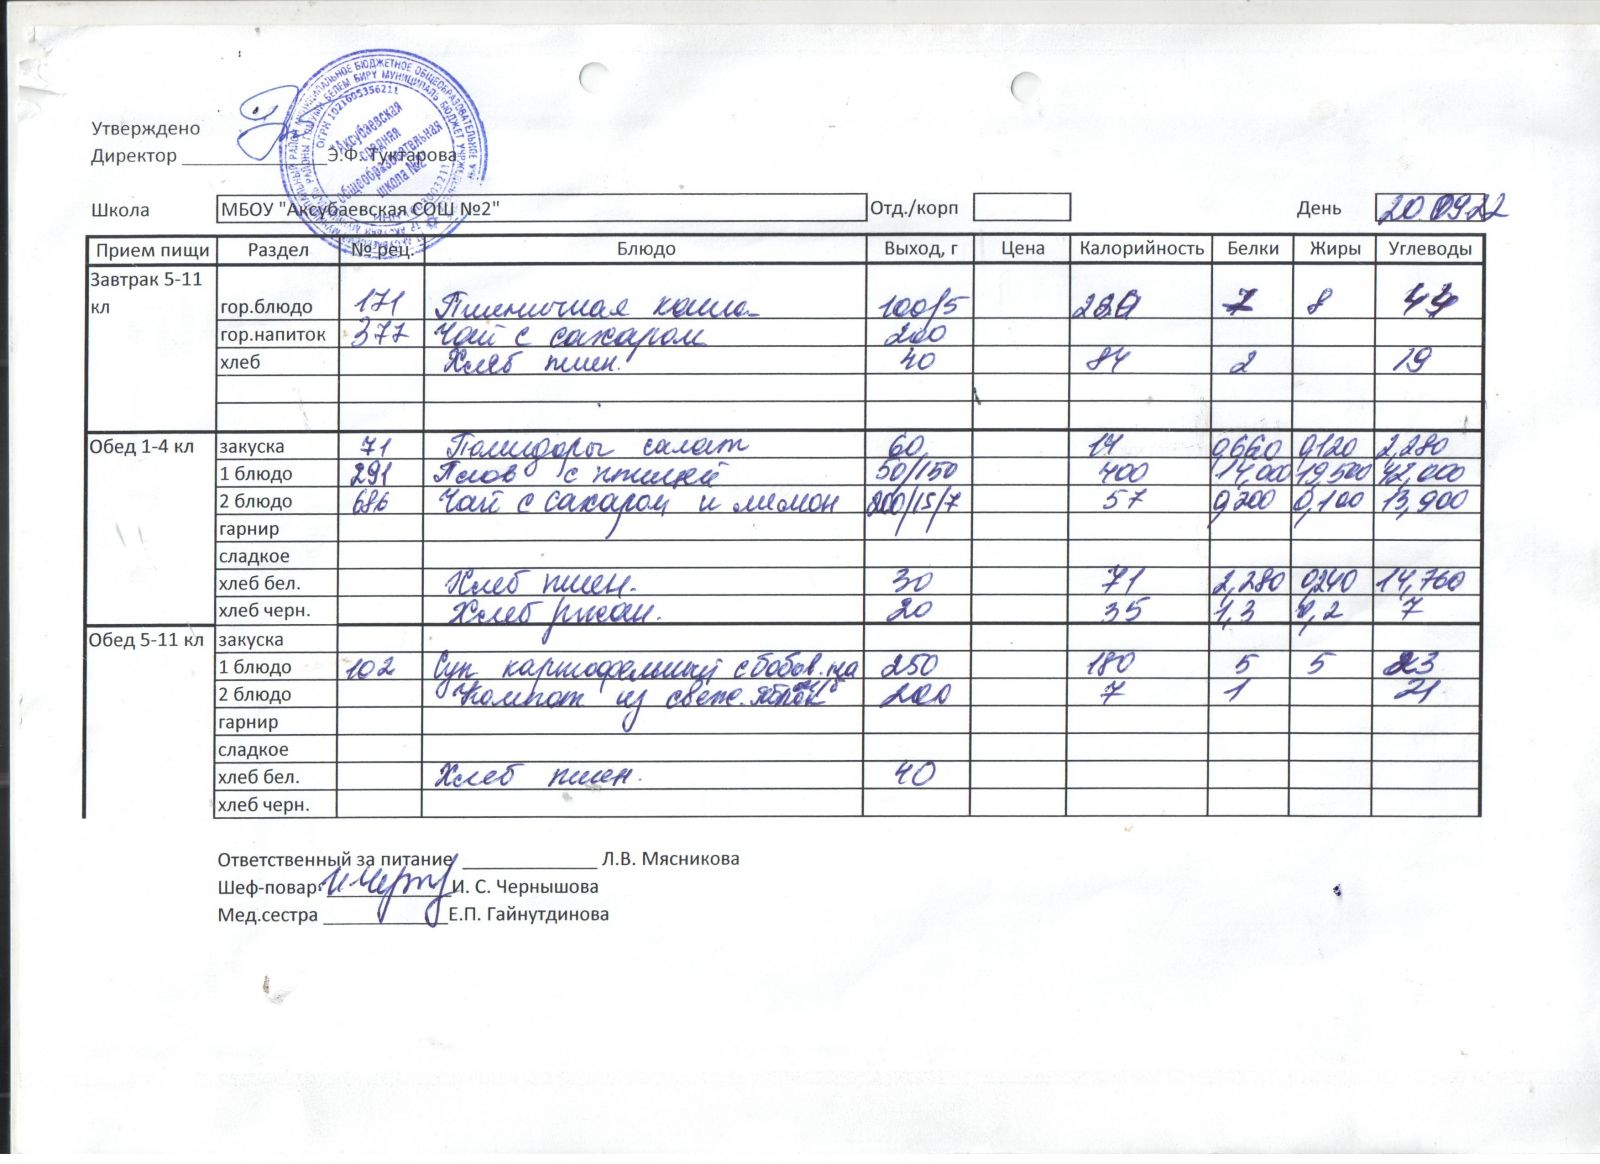 Утверждено
Директор ______________Э.Ф. Туктарова
"Аксубаевская
средняя
общеобразовательная
школа №2"
ОГРН 1021605356211
Школа МБОУ "Аксубаевская СОШ №2" Отд./корп День 20.09.22
Прием пищи Раздел № рец. Блюдо Выход, г Цена Калорийность Белки Жиры Углеводы
Завтрак 5-11 кл гор.блюдо 171 Пшеничная каша 100/5 7 8 44
гор.напиток 377 Чай с сахаром 200
хлеб Хлеб пшен. 40 84 2 19
Обед 1-4 кл закуска 71 Помидоры салат 60 14 0,660 0,120 2,280
1 блюдо 291 Плов с птицей 50/150 400 14,000 19,500 42,000
2 блюдо 686 Чай с сахаром и лимон 200/15/7 57 0,200 0,100 13,900
гарнир
сладкое
хлеб бел. Хлеб пшен. 30 71 2,280 0,240 14,760
хлеб черн. Хлеб ржан. 20 35 1,3 0,2 7
Обед 5-11 кл закуска
1 блюдо 102 Суп картофельный с бобов. 250 180 5 5 23
2 блюдо Компот из свеж. яблок 200 7 1 21
гарнир
сладкое
хлеб бел. Хлеб пшен. 40
хлеб черн.
Ответственный за питание _____________ Л.В. Мясникова
Шеф-повар ____________И. С. Чернышова
Мед.сестра ____________Е.П. Гайнутдинова